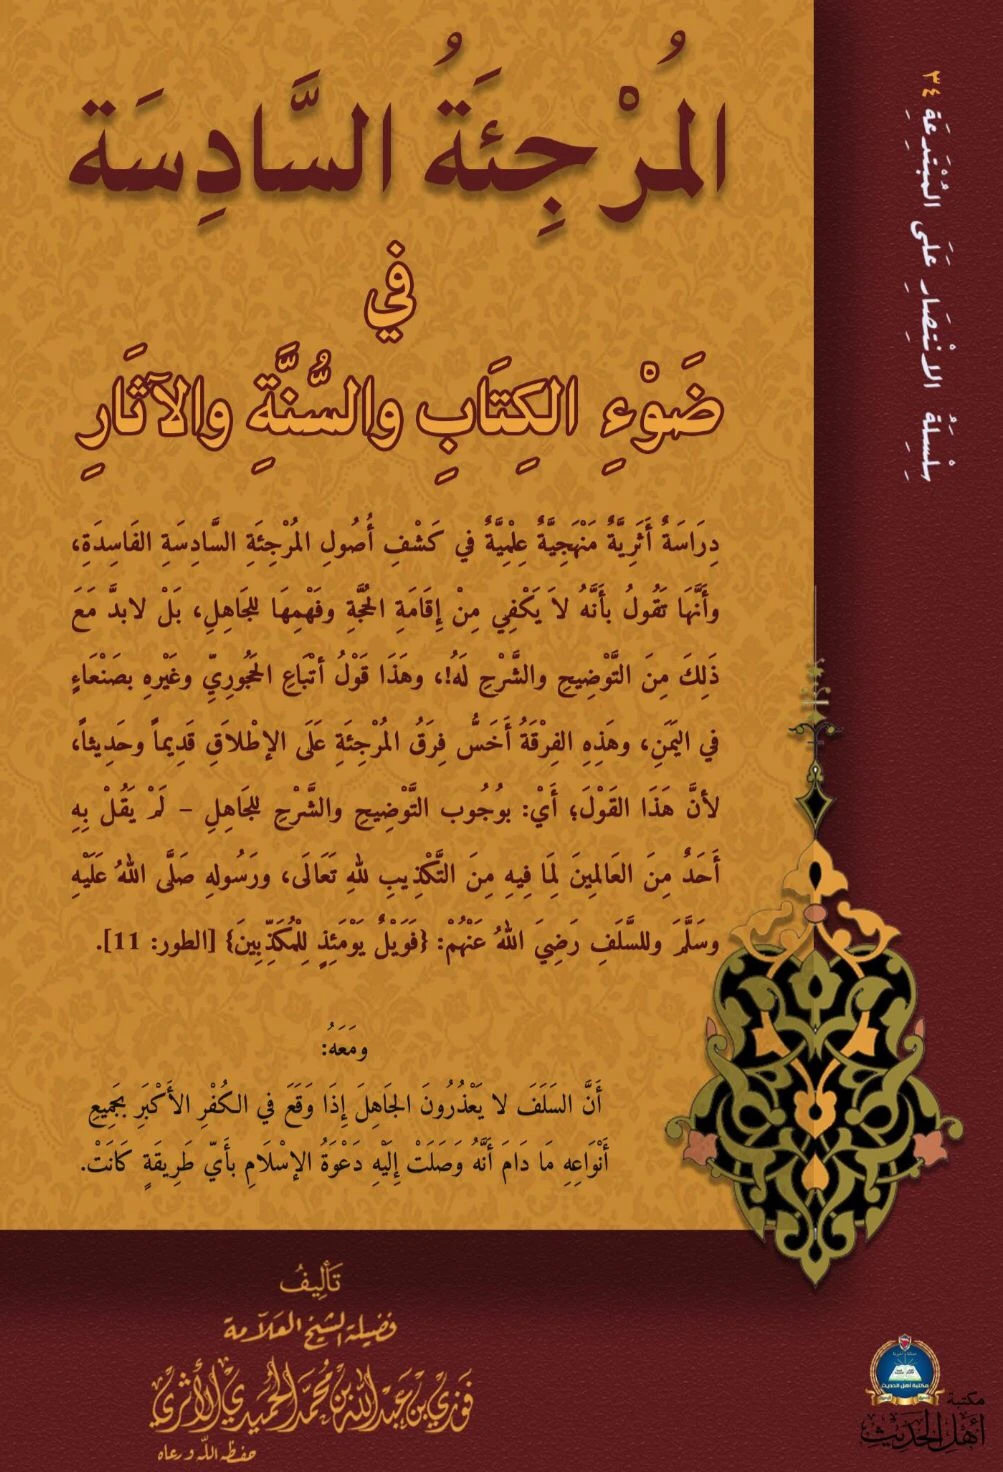 المُرْجِئَةُ السَّادِسَة
في
ضَوْءِ الكِتَابِ والسُّنَّةِ والآثَارِ
دِرَاسَةٌ أَثَرِيَّةٌ مَنْهَجِيَّةٌ عِلْمِيَّةٌ في كَشْفِ أُصُولِ المُرْجِئَةِ السَّادِسَةِ الفَاسِدَةِ،
وأَنَّهَا تَقُولُ بأَنَّهُ لاَ يَكْفِي مِنْ إِقَامَةِ الحُجَّةِ وفَهْمِهَا للجَاهِلِ، بَلْ لابدَّ مَعَ
ذَلِكَ مِنَ التَّوْضِيحِ والشَّرْحِ لَهُ!، وهَذَا قَوْلُ أتْبَاعِ الحَجُورِيِّ وغَيْرهِ بصَنْعَاءٍ
في اليَمَنِ، وهَذِهِ الفِرْقَةُ أَخَسُّ فِرَقُ المُرْجِئَةِ عَلَى الإطْلاَقِ قَدِيماً وحَدِيثاً،
لأنَّ هَذَا القَوْلَ؛ أَيْ: بوُجُوب التَّوْضِيحِ والشَّرْحِ للجَاهِلِ – لَمْ يَقُلْ بِهِ
أَحَدٌ مِنَ العَالمِينَ لِمَا فِيهِ مِنَ التَّكْذِيبِ للهِ تَعَالَى، ورَسُولهِ صَلَّى اللهُ عَلَيْهِ
وسَلَّمَ وللسَّلَفِ رَضِيَ اللهُ عَنْهُمْ: {فَوَيْلٌ يَوْمَئِذٍ لِلْمُكَذِّبِينَ} [الطور: 11].
ومَعَهُ:
أَنَّ السَلَفَ لا يَعْذُرُونَ الجَاهِلَ إِذَا وَقَعَ في الكُفْرِ الأَكْبَرِ بجَمِيعِ
أَنْوَاعِهِ مَا دَامَ أَنَّهُ وَصَلَتْ إِلَيْهِ دَعْوَةُ الإسْلاَمِ بأَيِّ طَرِيقَةٍ كَانَتْ.
تَأْلِيفُ
فضيلة الشيخ العَلاّمة
فَوْزِي بْنِ عَبْدِ اللهِ بْنِ مُحَمَّد الحُمَيدِي الأَثَرِي
حفظه اللّه ورعاه
سِلْسِلَةُ الانْتِصَارِ عَلَى المُبْتَدِعَةِ ٣٤
مكتبة
أهل الحَدِيثِ
مكتبة أهل الحديث